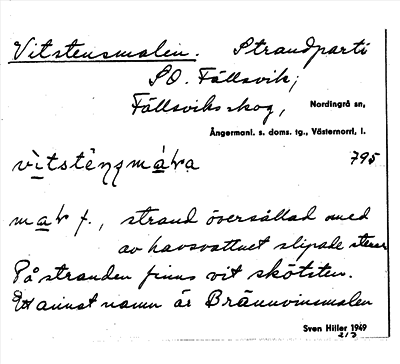 Vitstensmalen. Strandparti
SO. Fällsvik;
Fällsviks skog, Nordingrå sn,
Ångermanl. s. doms. tg., Västernorrl. l.
795
strand översållad med
av havsvattnet slipade stenar
På stranden finns vit skötsten.
Ett annat namn är Brännvinsmalen
Sven Hiller 1949